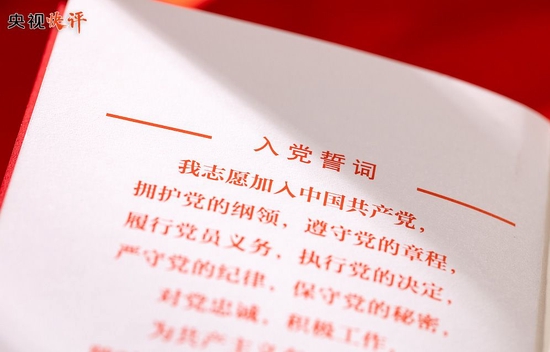 央视快评
入党誓词
我志愿加入中国共产党，
拥护党的纲领，遵守党的章程，
履行党员义务，执行党的决定，
严守党的纪律，保守党的秘密，
对党忠诚，积极工作，
为共产主义